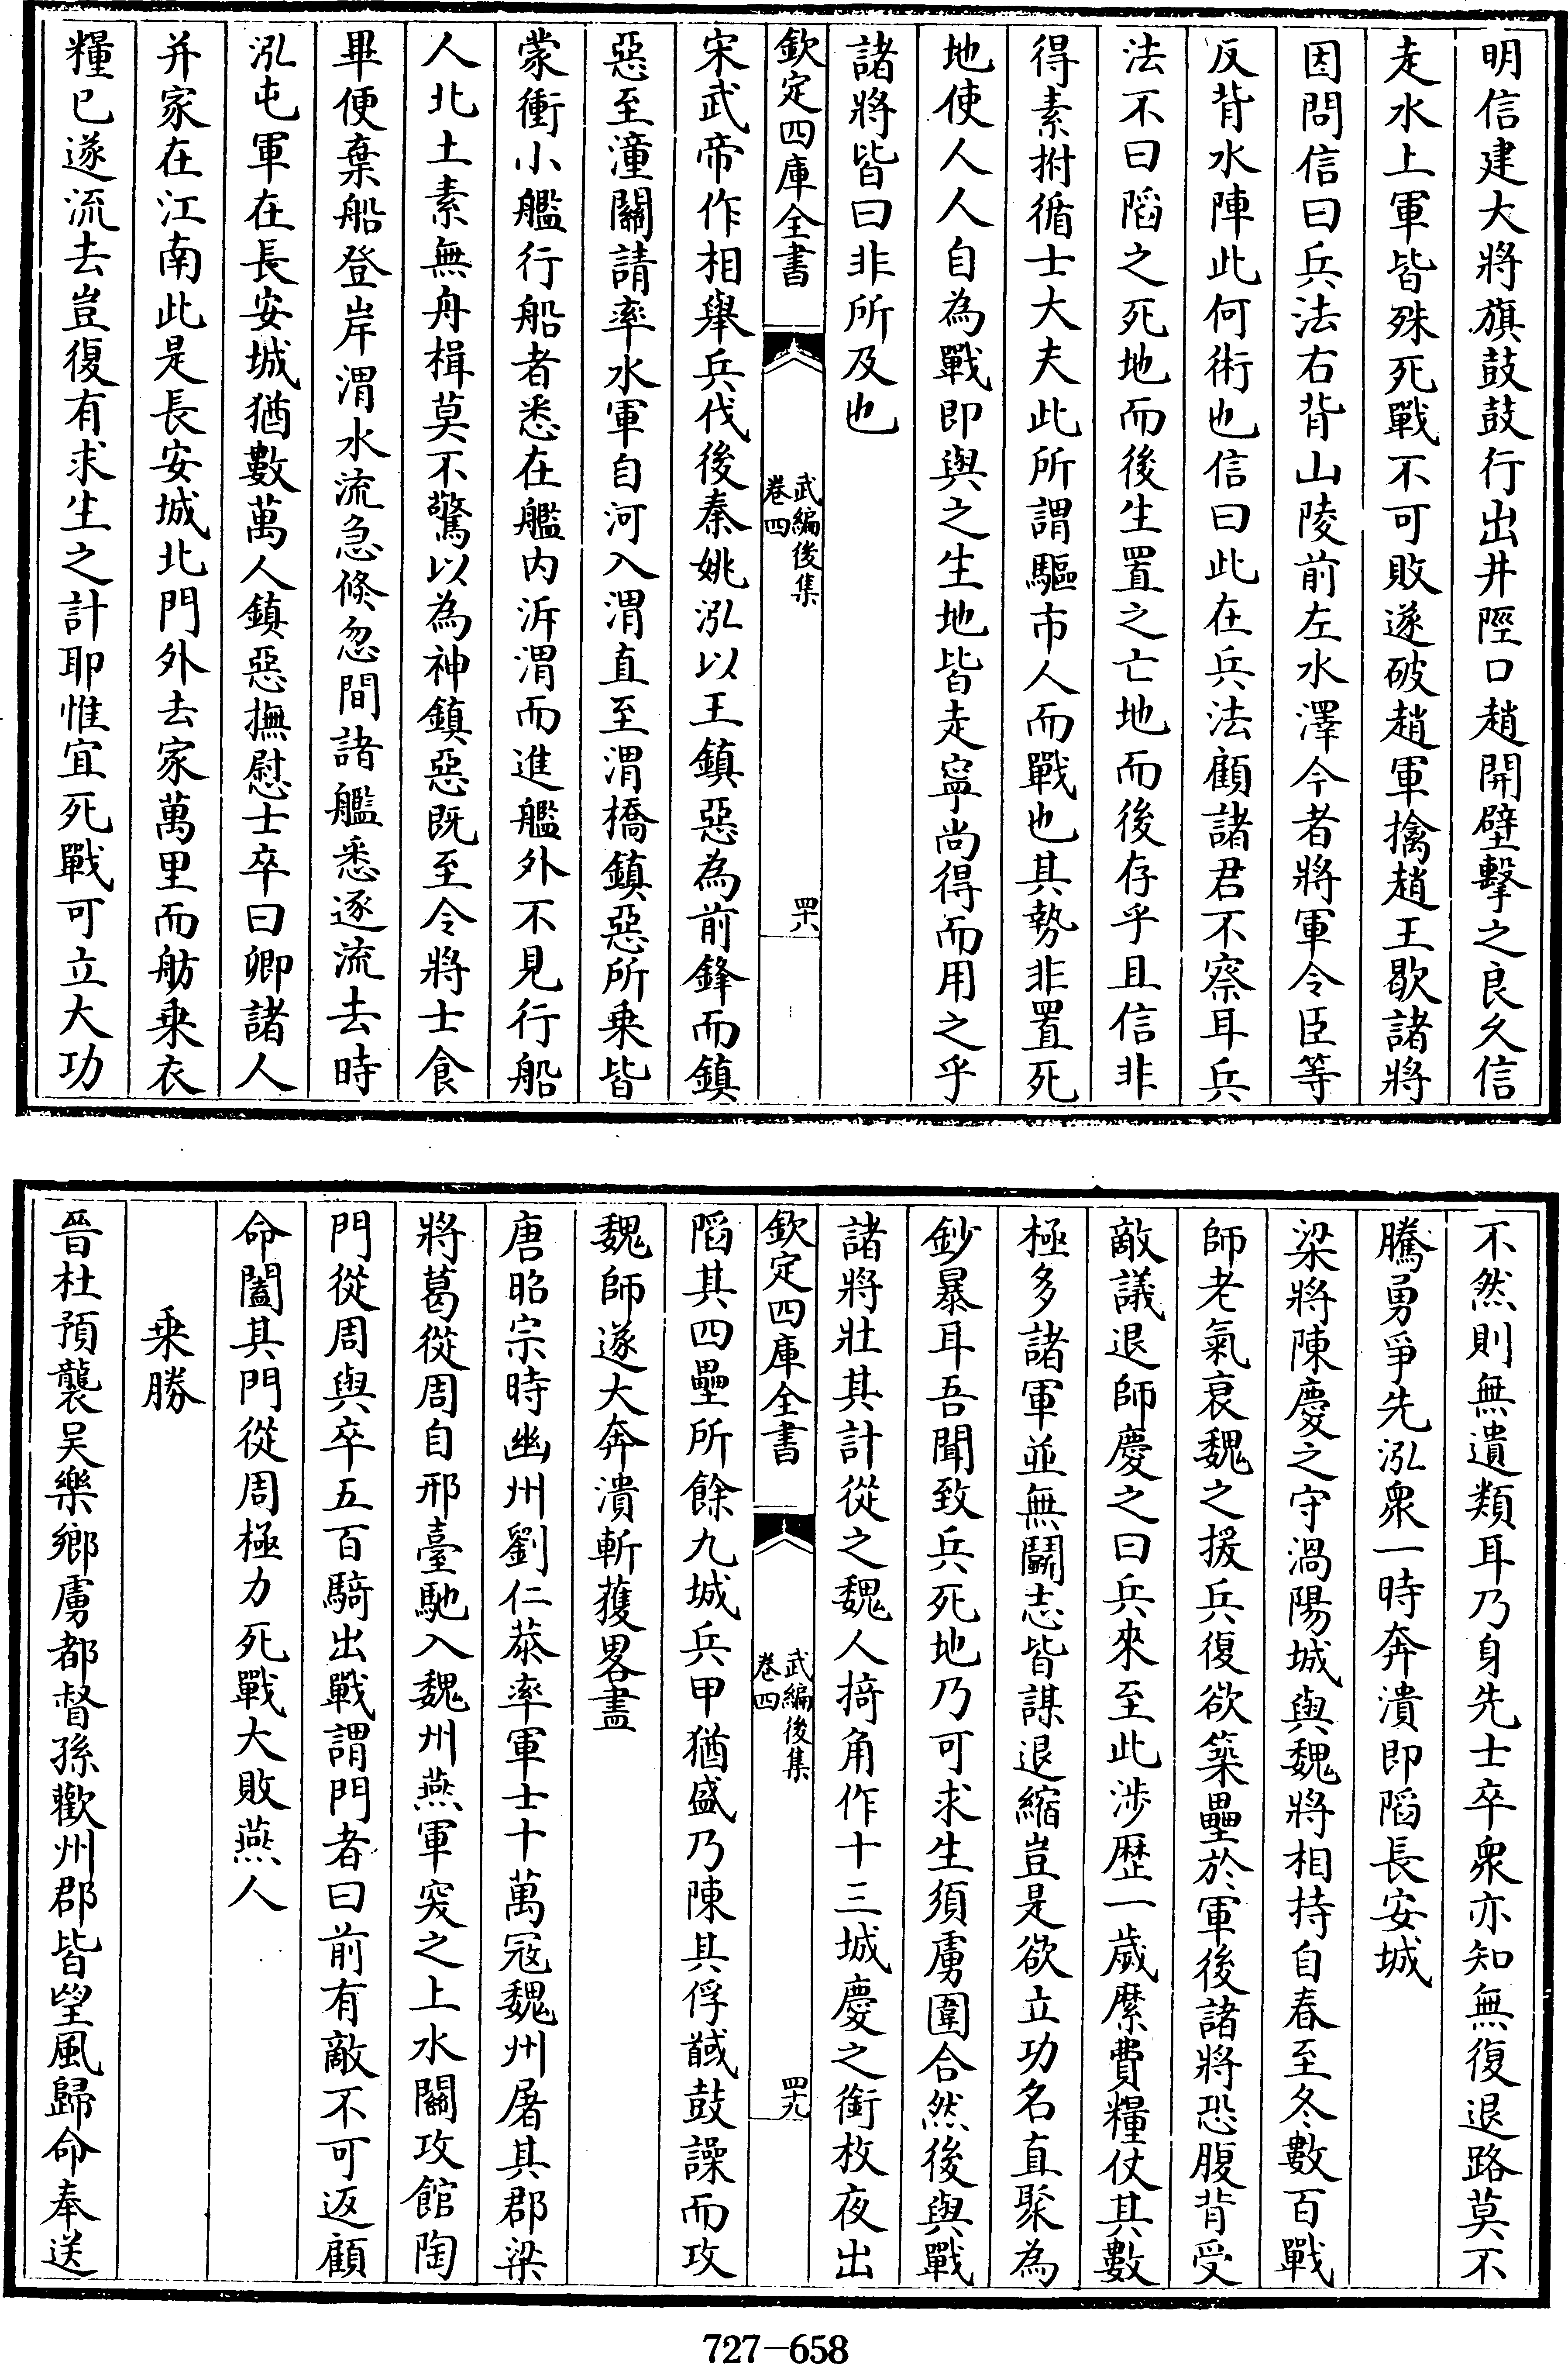 明信建大將旗鼓鼓行出井陘口趙開壁擊之良久信
走水上軍皆殊死戰不可敗遂破趙軍擒趙王歇諸將
因問信曰兵法右背山陵前左水澤今者將軍令臣等
反背水陣此何術也信曰此在兵法顧諸君不察耳兵
法不曰陷之死地而後生置之亡地而後存乎且信非
得素拊循士大夫此所謂驅市人而戰也其勢非置死
地使人人自為戰即與之生地皆走寧尚得而用之乎
諸將皆曰非所及也
欽定四庫全書
武編後集
卷四
四十八
宋武帝作相舉兵伐後秦姚泓以王鎮惡為前鋒而鎮
惡至潼關請率水軍自河入渭直至渭橋鎮惡所乗皆
蒙衝小艦行船者悉在艦内泝渭而進艦外不見行船
人北土素無舟楫莫不驚以為神鎮惡既至令將士食
畢便棄船登岸渭水流急倐忽間諸艦悉逐流去時
泓屯軍在長安城猶數萬人鎮惡撫慰士卒曰卿諸人
并家在江南此是長安城北門外去家萬里而舫乗衣
糧已遂流去豈復有求生之計耶惟宜死戰可立大功
不然則無遺類耳乃身先士卒衆亦知無復退路莫不
騰勇爭先泓衆一時奔潰即陷長安城
梁將陳慶之守渦陽城與魏將相持自春至冬數百戰
師老氣衰魏之援兵復欲築壘於軍後諸將恐腹背受
敵議退師慶之曰兵來至此涉歴一歲縻費糧仗其數
極多諸軍並無鬭志皆謀退縮豈是欲立功名直聚為
鈔暴耳吾聞致兵死地乃可求生須虜圍合然後與戰
諸將壯其計從之魏人掎角作十三城慶之銜枚夜出
欽定四庫全書
武編後集
卷四
四十九
陷其四壘所餘九城兵甲猶盛乃陳其俘馘鼓譟而攻
魏師遂大奔潰斬獲畧盡
唐昭宗時幽州劉仁恭率軍士十萬冦魏州屠其郡梁
將葛從周自邢臺馳入魏州燕軍突之上水關攻館陶
門從周與卒五百騎出戰謂門者曰前有敵不可返顧
命闔其門從周極力死戰大敗燕人
乗勝
晉杜預襲吴樂鄉虜都督孫歡州郡皆望風歸命奉送
727-658